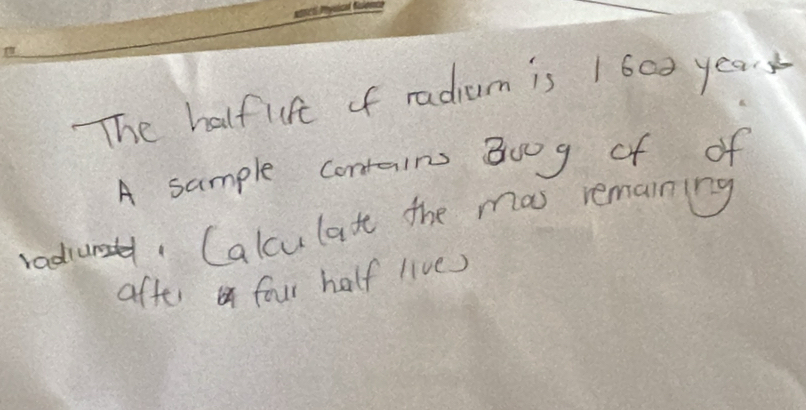 Physical Science
The half life of radium is 1602 years
A sample contains 800g of of
radium. Calculate the mass remaining
after four half lives